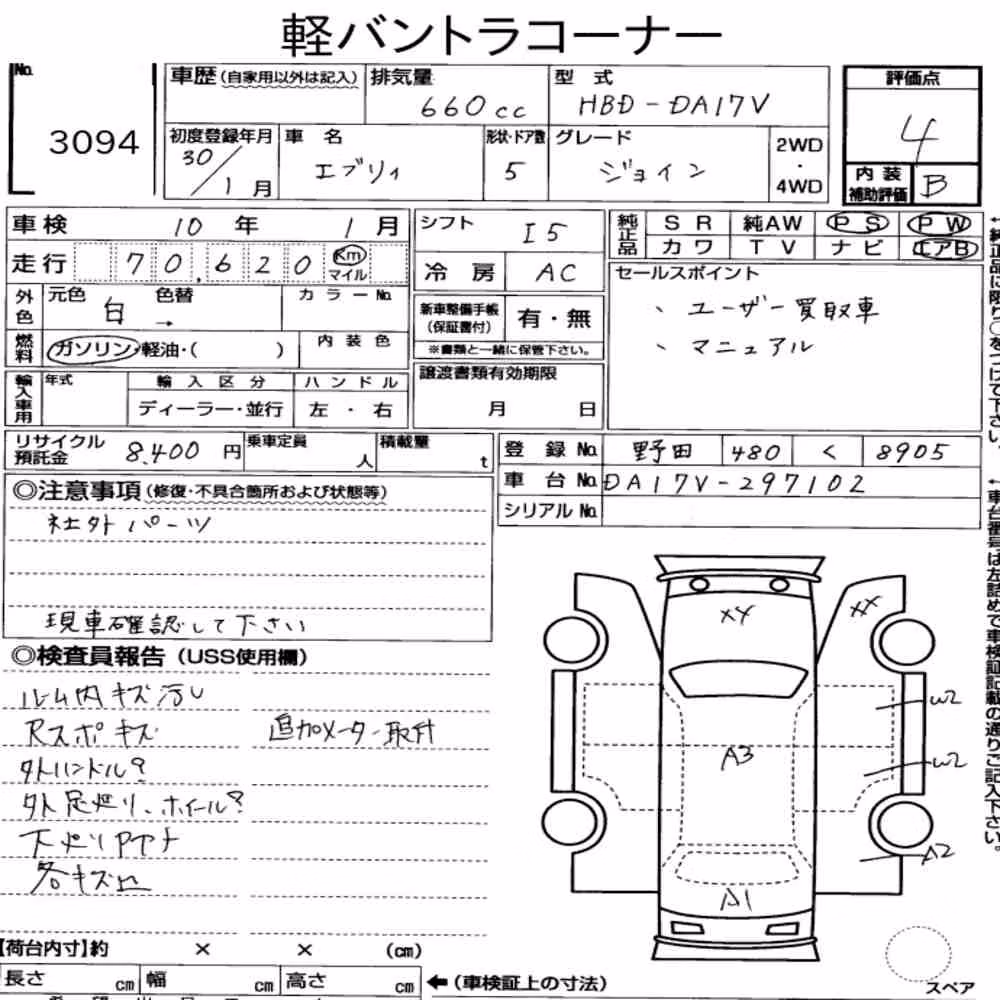 軽バントラコーナー
No. 3094
車歴(自家用以外は記入) 排気量 660cc 型式 HBD-DA17V
初度登録年月 30/1月 車名 エブリィ 形状・ドア数 5 グレード ジョイン 2WD・4WD
評価点 4
内装補助評価 B
車検 10年 1月
走行 70,620 Km マイル
外色 元色 白 色替 → カラーNo.
燃料 ガソリン・軽油・( ) 内装色
輸入車用 年式 輸入区分 ハンドル
ディーラー・並行 左・右
シフト I5
冷房 AC
新車整備手帳(保証書付) 有・無
※書類と一緒に保管下さい。
譲渡書類有効期限
月 日
純正品 SR 純AW PS PW
カワ TV ナビ エアB
セールスポイント
、ユーザー買取車
、マニュアル
リサイクル預託金 8,400円 乗車定員 人 積載量 t
登録No. 野田 480 く 8905
車台No. DA17V-297102
シリアルNo.
◎注意事項(修復・不具合箇所および状態等)
社外パーツ
現車確認して下さい
◎検査員報告(USS使用欄)
ルーム内キズ汚レ
Rスポキズ 追加メーター取付
外ハンドル?
外足廻り、ホイール?
下廻り
各キズ凹
XY
XX
W2
A3
W2
A2
A1
【荷台内寸】約 × × (cm)
長さ cm 幅 cm 高さ cm ←(車検証上の寸法)
スペア
←純正品に限り○をつけて下さい。
←車台番号は左詰めで車検証記載の通りご記入下さい。